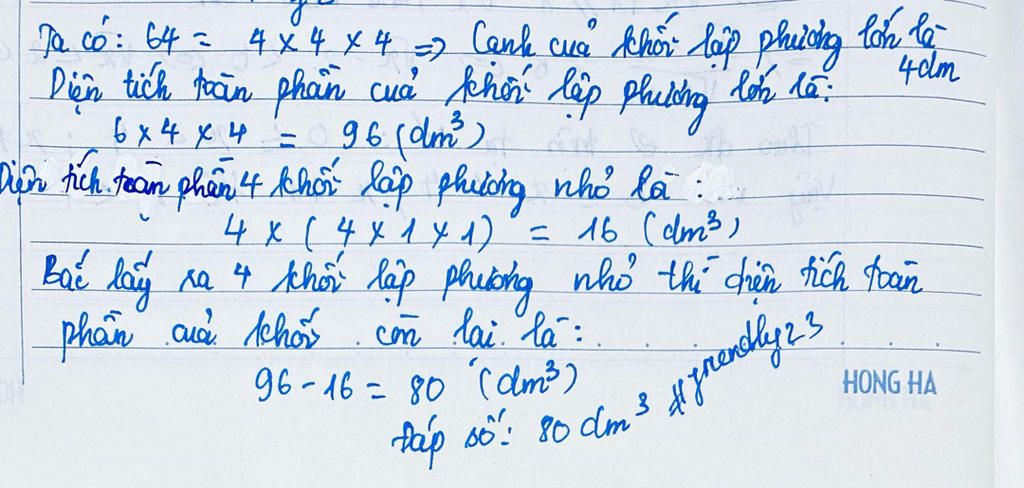 Ta có: 64 = 4 x 4 x 4 => Cạnh cuả khối lập phương lớn là
4dm
Diện tích toàn phần cuả khối lập phương lớn là:
6 x 4 x 4 = 96 (dm³)
Diện tích toàn phần 4 khối lập phương nhỏ là :
4 x ( 4 x 1 x 1) = 16 (dm³)
Bác lấy ra 4 khối lập phương nhỏ thì diện tích toàn
phần cuả khối còn lại là:
96 - 16 = 80 (dm³)
HONG HA
Đáp số: 80 dm³